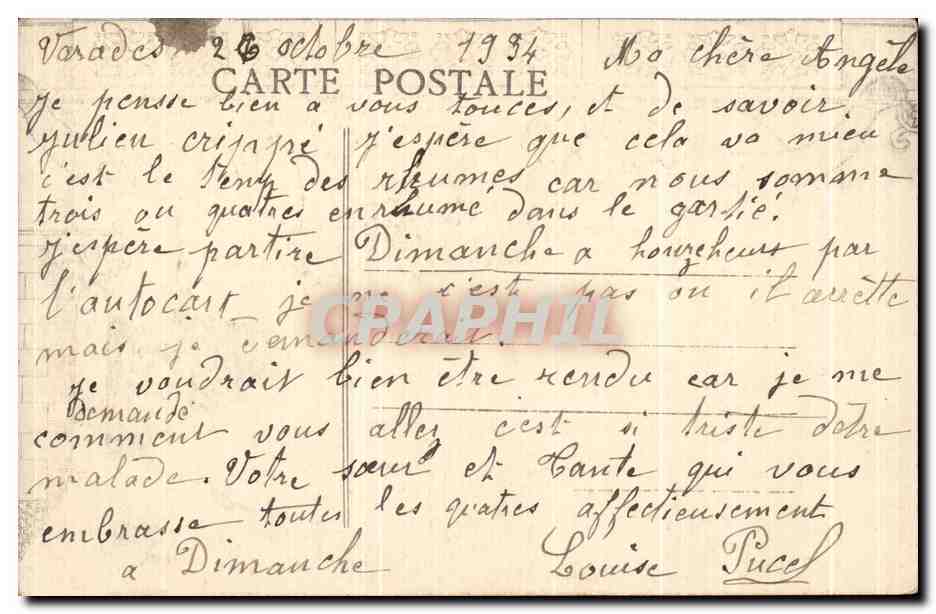 Varades 26 octobre 1934 Ma chère Angèle
CARTE POSTALE
je pensse bien a vous toutes, et de savoir
Julien crippé j'espère que cela va mieu
c'est le temp des rhumes car nous somme
trois ou quatres enrhumé dans le gartié.
j'espère partire Dimanche a houzeheurs par
l'autocart je ne c'est pas ou il arrètte
CRAPHIL
mais je demanderai.
je voudrait bien être rendu car je me
demande
comment vous allez c'est si triste d'être
malade. Votre sœur et Tante qui vous
embrasse toutes les quatres affectieusement
a Dimanche Louise Pucel